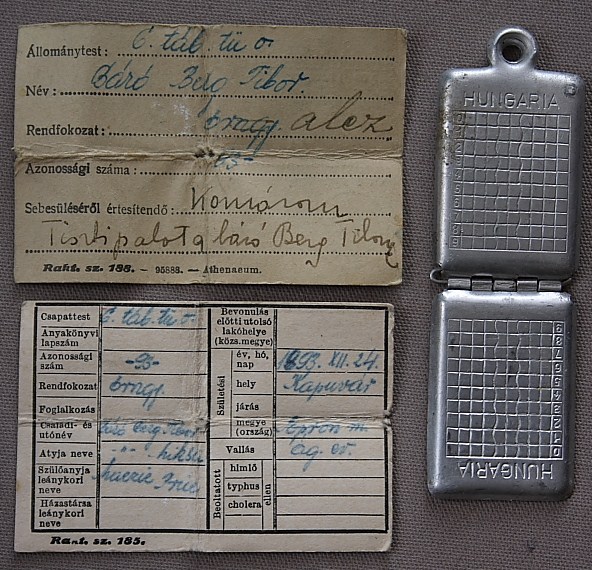 Állománytest: 6. táb. tü. o.
Név: Báró Berg Tibor.
Rendfokozat: őrnagy. alez
Azonossági száma: -95-
Sebesüléséről értesítendő: Komárom
Tisztipalota báró Berg Tiborné
Rakt. sz. 188. - 95888. - Athenaeum.
Csapattest 6. táb. tü. o.
Anyakönyvi lapszám
Azonossági szám -95-
Rendfokozat őrngy.
Foglalkozás
Családi- és utónév Báró Berg Tibor
Atyja neve " " Miksa
Szülőanyja leánykori neve
Házastársa leánykori neve
Bevonulás előtti utolsó lakóhelye (közs. megye)
Születési
év, hó, nap 1893. XII. 24.
hely Kapuvár
járás
megye (ország) Sopron m.
Vallás ág. ev.
Beoltatott
himlő
typhus
cholera
ellen
Rakt. sz. 185.
HUNGARIA
0
1
2
3
4
5
6
7
8
9
9
8
7
6
5
4
3
2
1
0
HUNGARIA